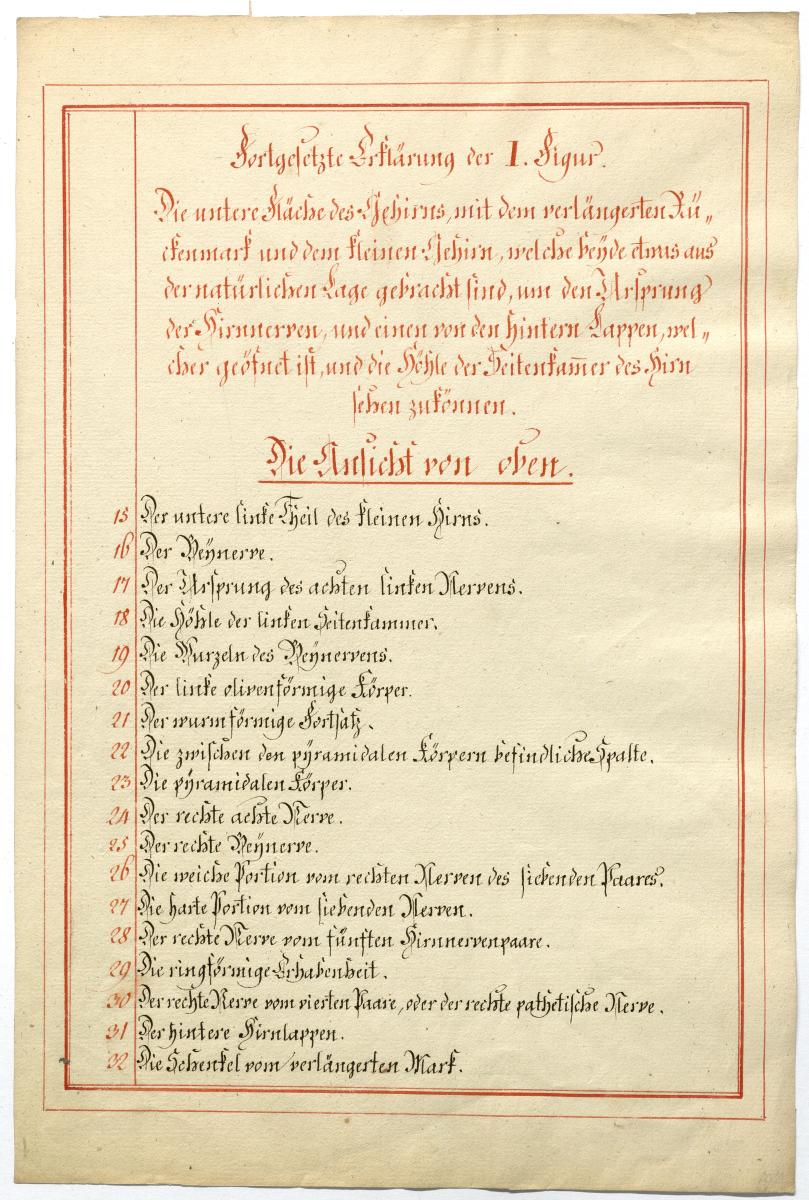 Fortgesetzte Erklärung der I. Figur.
Die untere Fläche des Gehirns, mit dem verlängerten Rü„
ckenmark und dem kleinen Gehirn, welche beÿde etwas aus
der natürlichen Lage gebracht sind, um den Ursprung
der Hirnnerven, und einen von den hintern Lappen, wel„
cher geöfnet ist, und die Höhle der Seitenkam̅er des Hirn
sehen zukönnen.
Die Ansicht von oben.
15 Der untere linke Theil des kleinen Hirns.
16 Der Beÿnerve.
17 Der Ursprung des achten linken Nervens.
18 Die Höhle der linken Seitenkammer.
19 Die Wurzeln des Beÿnervens.
20 Der linke olivenförmige Körper.
21 Der wurmförmige Fortsatz.
22 Die zwischen den pÿramidalen Körpern befindliche Spalte.
23 Die pÿramidalen Körper.
24 Der rechte achte Nerve.
25 Der rechte Beÿnerve.
26 Die weiche Portion vom rechten Nerven des siebenden Paares.
27 Die harte Portion vom siebenden Nerven.
28 Der rechte Nerve vom fünften Hirnnervenpaare.
29 Die ringförmige Erhabenheit.
30 Der rechte Nerve vom vierten Paare, oder der rechte pathetische Nerve.
31 Der hintere Hirnlappen.
32 Die Schenkel vom verlängerten Mark.